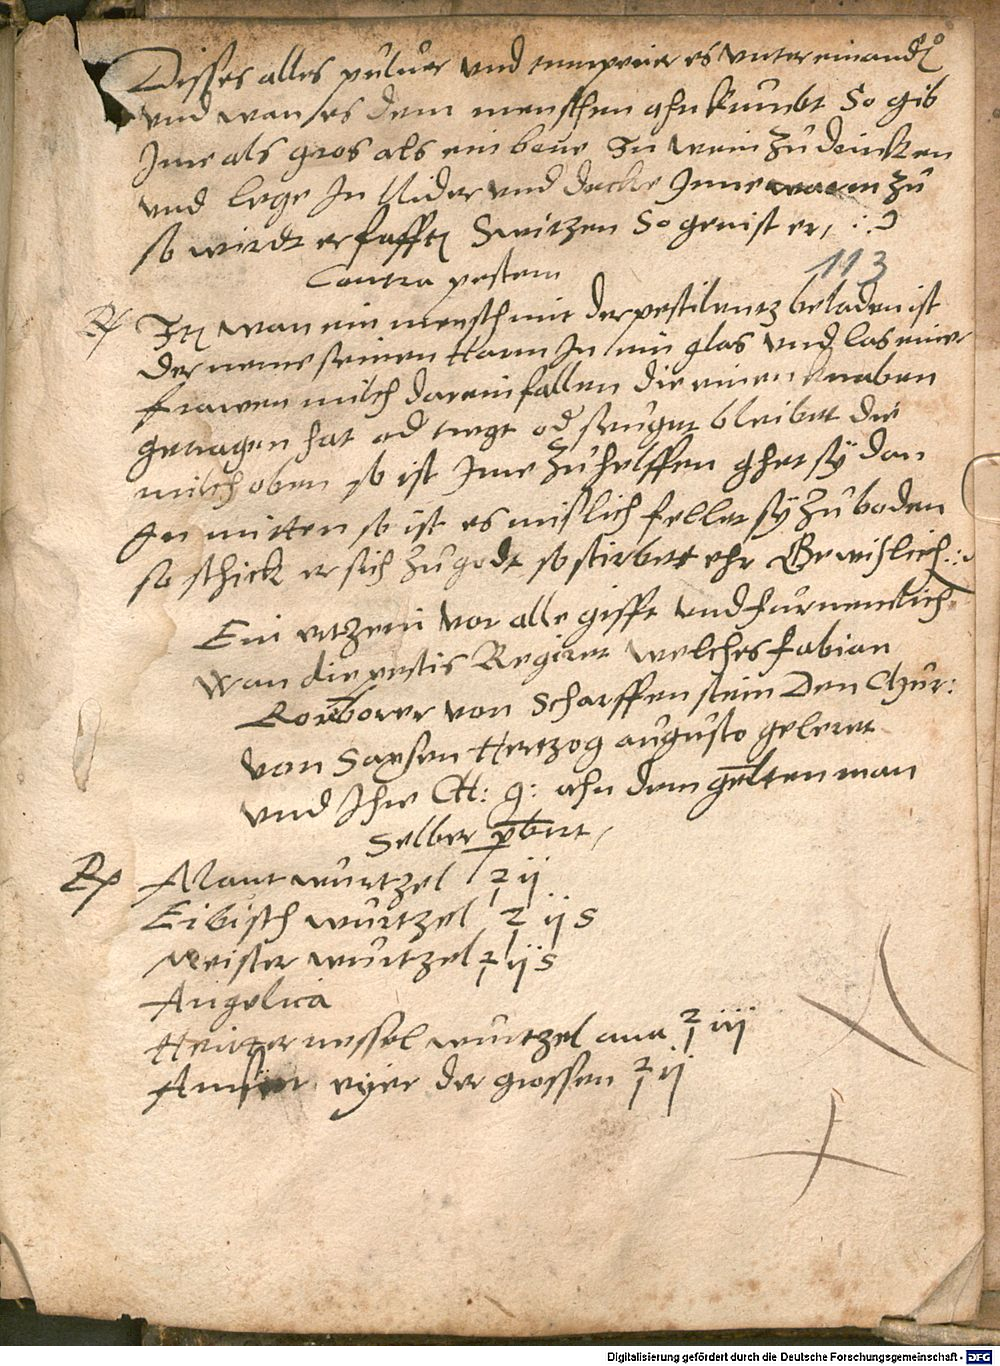 Disses alles puluer und temperier es untereinand
und wan es dem menschen ahn kumbt So gib
Ime als gros als ein bone In wein zu drincken
und lege In Nider und decke Inne warm zu
so wirdt er fasst Switzen So genist er, :.
Contra pestem
113
Rp It wan ein mensch mit der pestilentz beladen ist
der neme seinen Harm In ein glas und las einer
frawen milch darein fallen die einen knaben
getragen hat od tregt od seuget bleibet die
milch oben so ist Ime zu helffen ghet sy dan
In mitten so ist es mislich fellet sy zu boden
so schick er sich zu godt so stirbett ehr Gewislich :.
Ein ertzeni vor alle gifft und furnemlich
wan die pestis Regiret welches fabian
von Scharffenstein Den Chur:
von Saxsen Hertzog augusto geleret
und Ihre Ch: g: ahn dem man
Selber
Rp Alant wurtzel ʒ ij
Eibisch wurtzel ʒ ij s
Meister wurtzel ʒ ij s
Angelica
Heitter nessel wurtzel ana ʒ iij
eyer der grossen ʒ ij
Digitalisierung gefördert durch die Deutsche Forschungsgemeinschaft - DFG